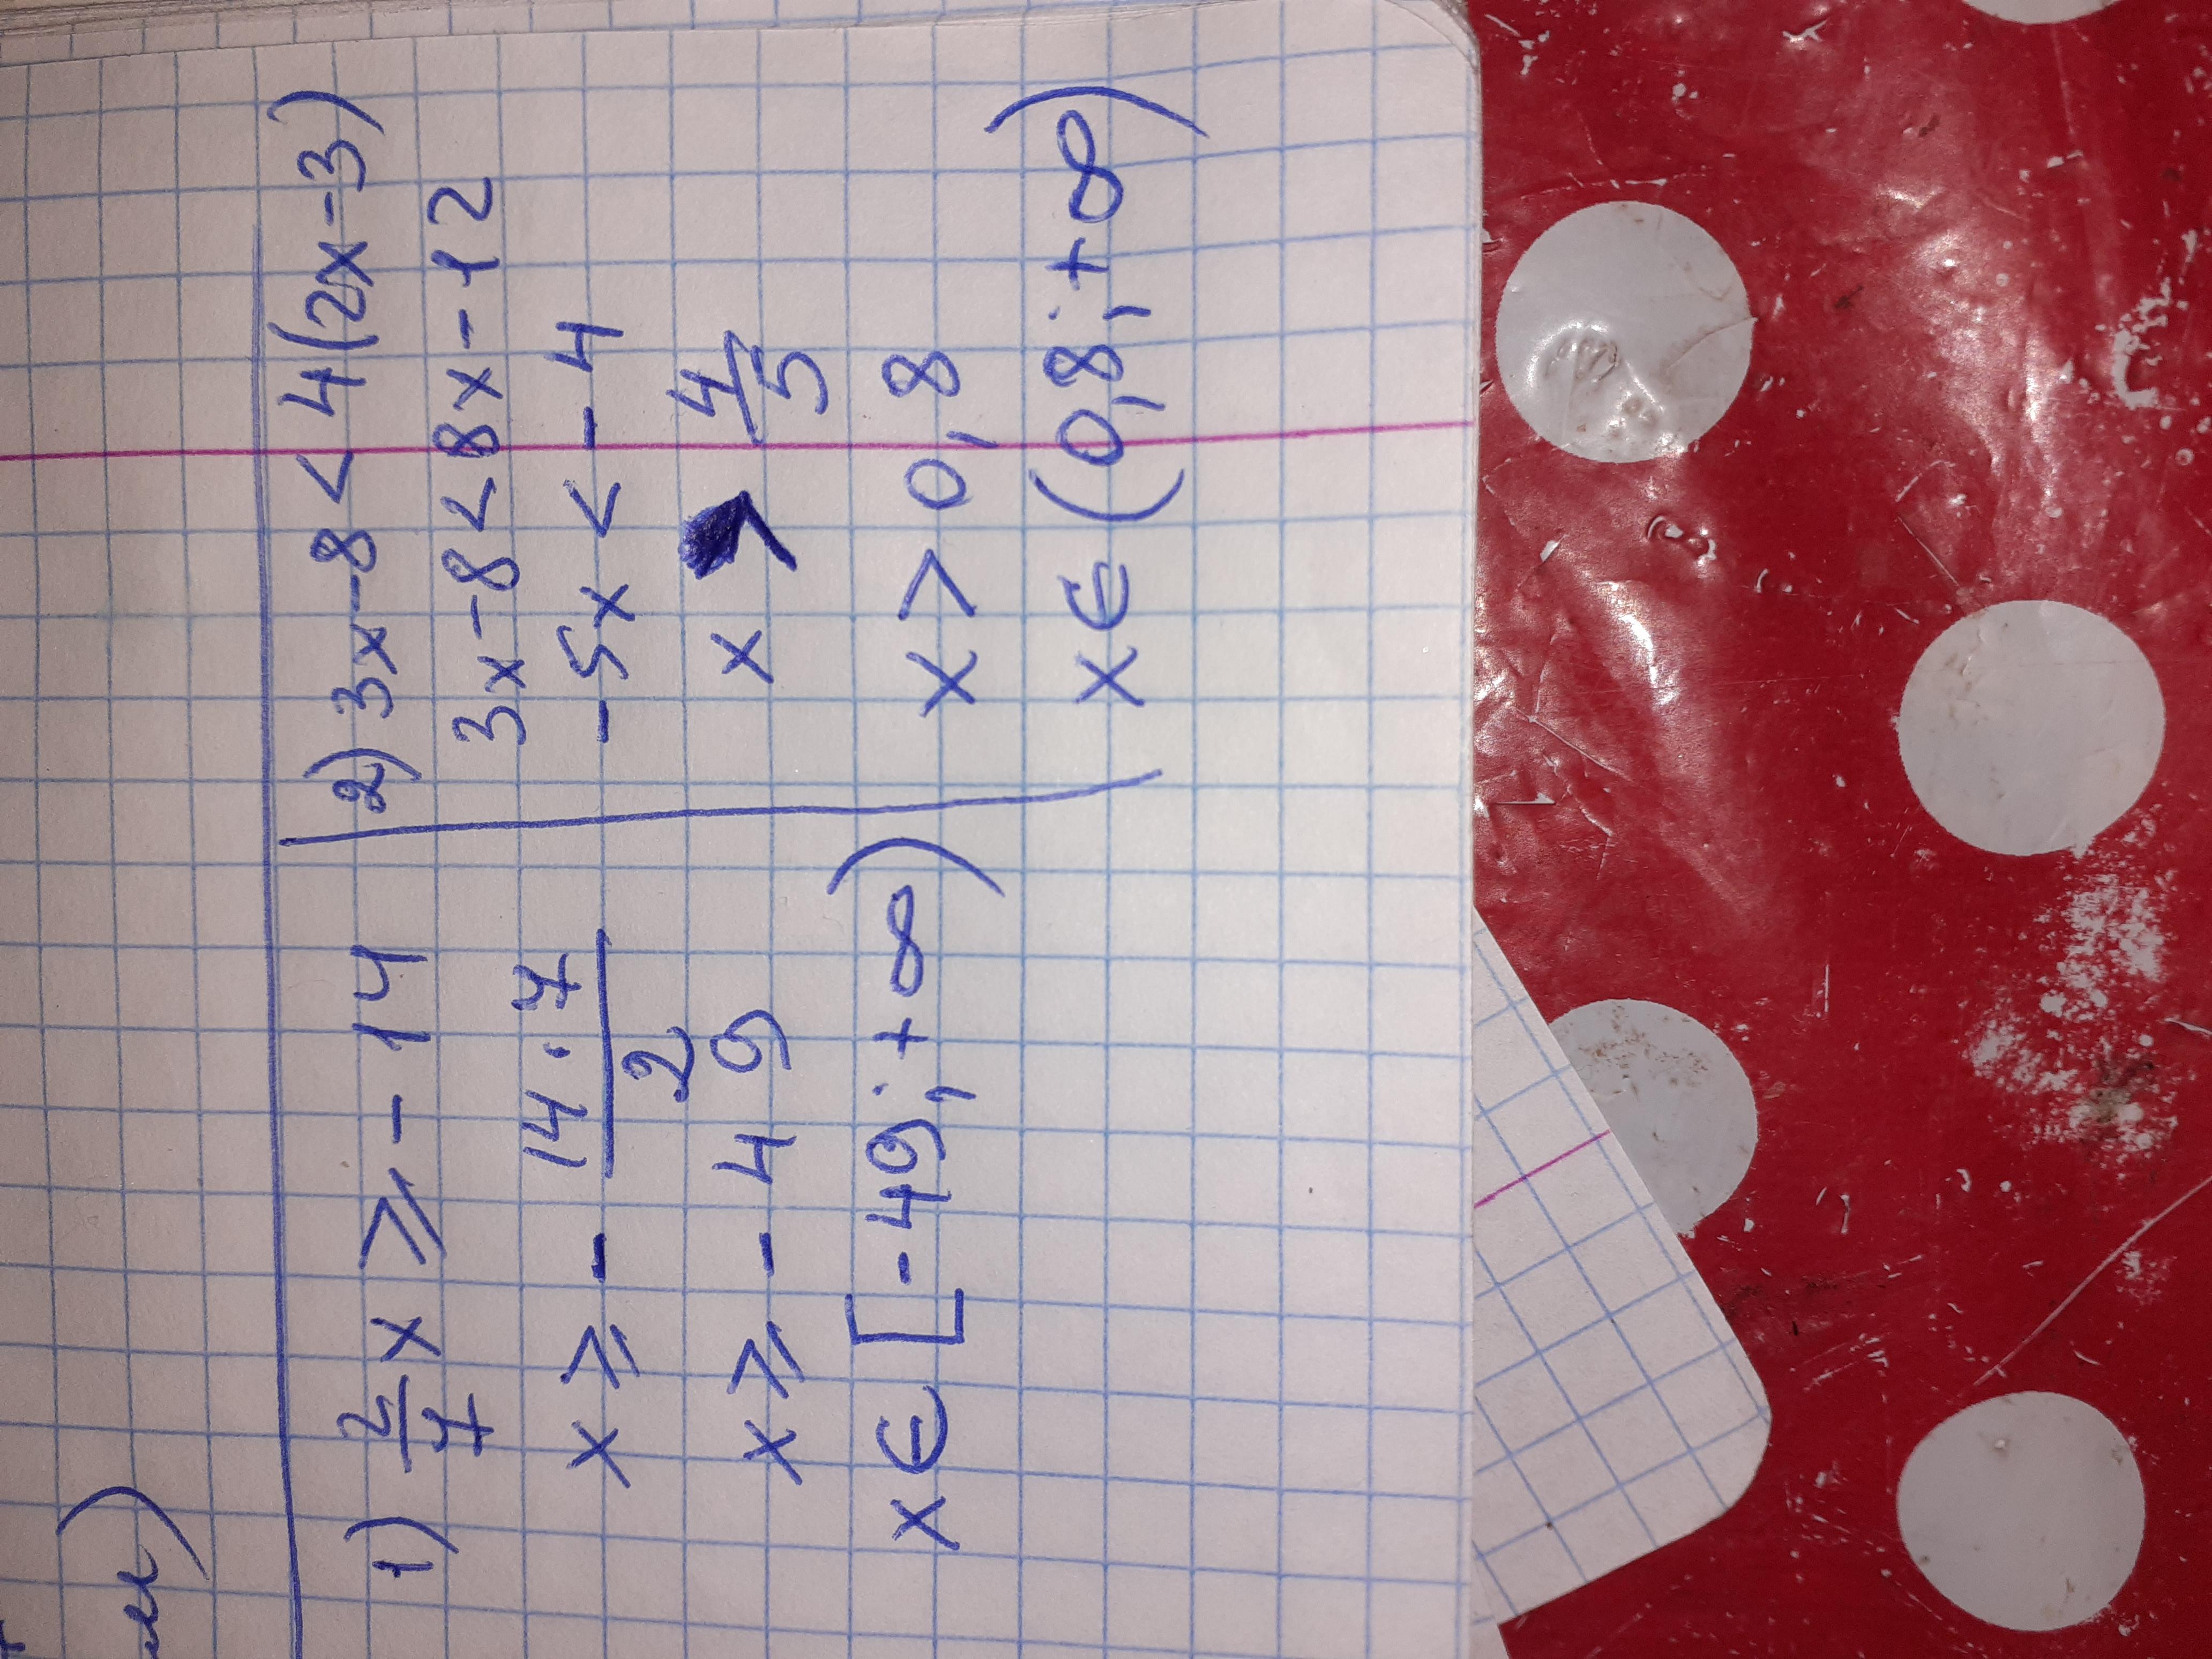 1) 2/7 x ⩾ - 14
x ⩾ - 14 · 7 / 2
x ⩾ - 49
x ∈ [-49; +∞)
2) 3x-8 < 4(2x-3)
3x-8 < 8x-12
-5x < -4
x > 4/5
x > 0,8
x ∈ (0,8; +∞)